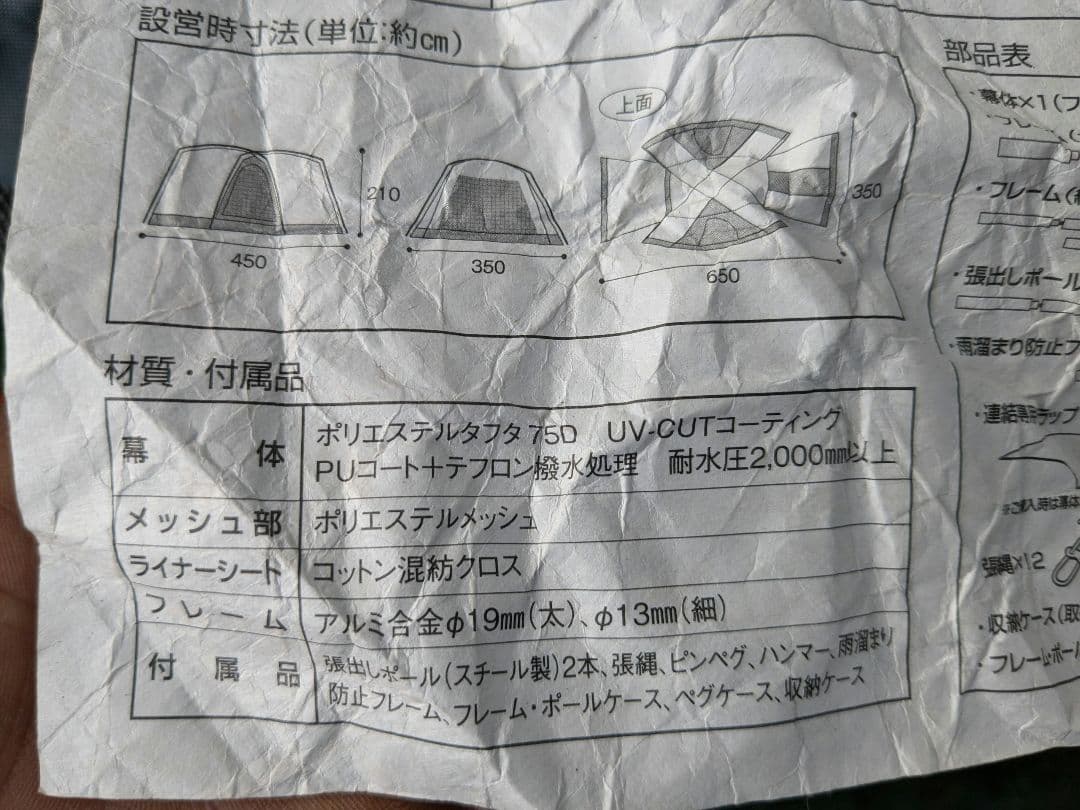 設営時寸法(単位:約cm)
上面
210
450
350
650
350
材質・付属品
幕体
ポリエステルタフタ75D UV-CUTコーティング
PUコート+テフロン撥水処理 耐水圧2,000mm以上
メッシュ部
ポリエステルメッシュ
ライナーシート
コットン混紡クロス
フレーム
アルミ合金φ19mm(太)、φ13mm(細)
付属品
張出しポール(スチール製)2本、張縄、ピンペグ、ハンマー、雨溜まり
防止フレーム、フレーム・ポールケース、ペグケース、収納ケース
部品表
・幕体×1(フ
・フレーム(
・張出しポール
・雨溜まり防止フ
・連結用ストラップ
張縄×12
・収納ケース(取
・フレーム・ポール